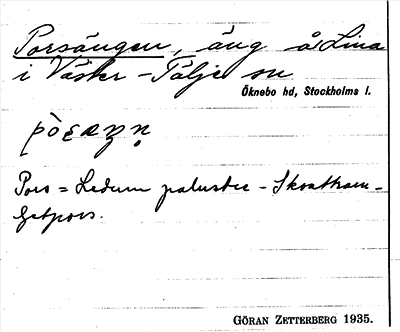 Porsängen, äng å Lina
i Väster-Tälje sn
Öknebo hd, Stockholms l.
Pors = Ledum palustre - Skvattram -
Getpors.
GÖRAN ZETTERBERG 1935.